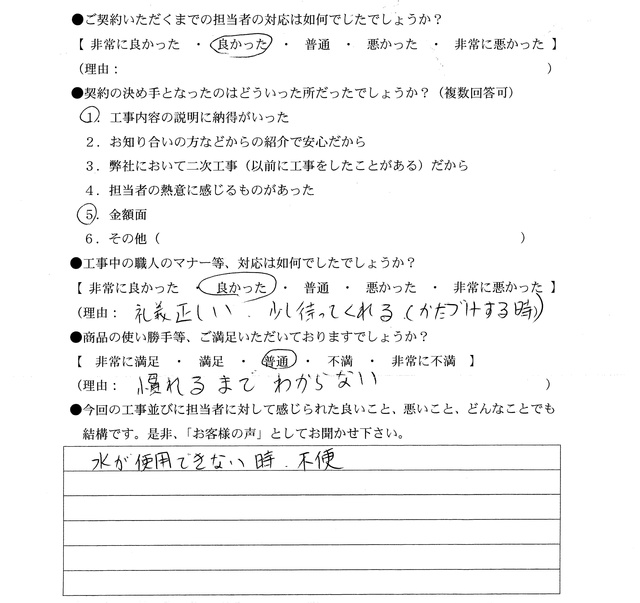 ●ご契約いただくまでの担当者の対応は如何でじたでしょうか？
【 非常に良かった ・ 良かった ・ 普通 ・ 悪かった ・ 非常に悪かった 】
（理由： ）
●契約の決め手となったのはどういった所だったでしょうか？（複数回答可）
1．工事内容の説明に納得がいった
2．お知り合いの方などからの紹介で安心だから
3．弊社において二次工事（以前に工事をしたことがある）だから
4．担当者の熱意に感じるものがあった
5．金額面
6．その他（ ）
●工事中の職人のマナー等、対応は如何でしたでしょうか？
【 非常に良かった ・ 良かった ・ 普通 ・ 悪かった ・ 非常に悪かった 】
（理由： 礼義正しい．少し待ってくれる（かたづけする時））
●商品の使い勝手等、ご満足いただいておりますでしょうか？
【 非常に満足 ・ 満足 ・ 普通 ・ 不満 ・ 非常に不満 】
（理由： 慣れるまでわからない ）
●今回の工事並びに担当者に対して感じられた良いこと、悪いこと、どんなことでも
結構です。是非、「お客様の声」としてお聞かせ下さい。
水が使用できない時．不便